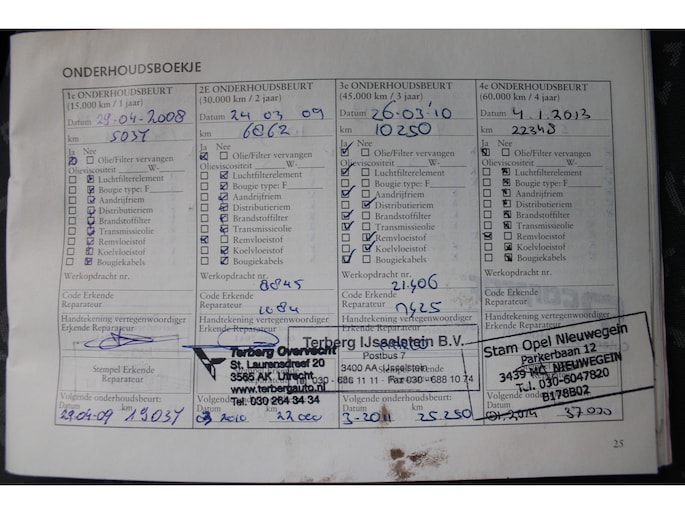 ONDERHOUDSBOEKJE
1e ONDERHOUDSBEURT
(15.000 km / 1 jaar)
Datum 29-04-2008
km 5037
Ja Nee
Olie/Filter vervangen
Olieviscositeit W-
Luchtfilterelement
Bougie type: F
Aandrijfriem
Distributieriem
Brandstoffilter
Transmissieolie
Remvloeistof
Koelvloeistof
Bougiekabels
Werkopdracht nr.
Code Erkende
Reparateur
Handtekening vertegenwoordiger
Erkende Reparateur
Stempel Erkende
Reparateur
Volgende onderhoudsbeurt:
Datum km
29-04-09 19037
2E ONDERHOUDSBEURT
(30.000 km / 2 jaar)
Datum 24 03 09
km 6862
Ja Nee
Olie/Filter vervangen
Olieviscositeit W-
Luchtfilterelement
Bougie type: F
Aandrijfriem
Distributieriem
Brandstoffilter
Transmissieolie
Remvloeistof
Koelvloeistof
Bougiekabels
Werkopdracht nr.
8845
Code Erkende
Reparateur
1084
Handtekening vertegenwoordiger
Erkende Reparateur
Terberg Overvecht
St. Laurensdreef 20
3565 AK Utrecht
www.terbergauto.nl
Tel. 030 264 34 34
Volgende onderhoudsbeurt:
Datum km
03 2010 22000
3e ONDERHOUDSBEURT
(45.000 km / 3 jaar)
Datum 26-03-'10
km 10250
Ja Nee
Olie/Filter vervangen
Olieviscositeit W-
Luchtfilterelement
Bougie type: F
Aandrijfriem
Distributieriem
Brandstoffilter
Transmissieolie
Remvloeistof
Koelvloeistof
Bougiekabels
Werkopdracht nr.
21406
Code Erkende
Reparateur
Handtekening vertegenwoordiger
Erkende Reparateur
Terberg IJsselstein B.V.
Postbus 7
3400 AA IJsselstein
Tel. 030 - 686 11 11 - Fax 030 - 688 10 74
Volgende onderhoudsbeurt:
Datum km
3-2011 25.250
4e ONDERHOUDSBEURT
(60.000 km / 4 jaar)
Datum 4.1.2013
km 22348
Ja Nee
Olie/Filter vervangen
Olieviscositeit W-
Luchtfilterelement
Bougie type: F
Aandrijfriem
Distributieriem
Brandstoffilter
Transmissieolie
Remvloeistof
Koelvloeistof
Bougiekabels
Werkopdracht nr.
Code Erkende
Reparateur
Handtekening vertegenwoordiger
Erkende Reparateur
Stam Opel Nieuwegein
Parkerbaan 12
3439 MC NIEUWEGEIN
Tel. 030-6047820
B178B02
Volgende onderhoudsbeurt:
Datum km
01.2014 37.000
25